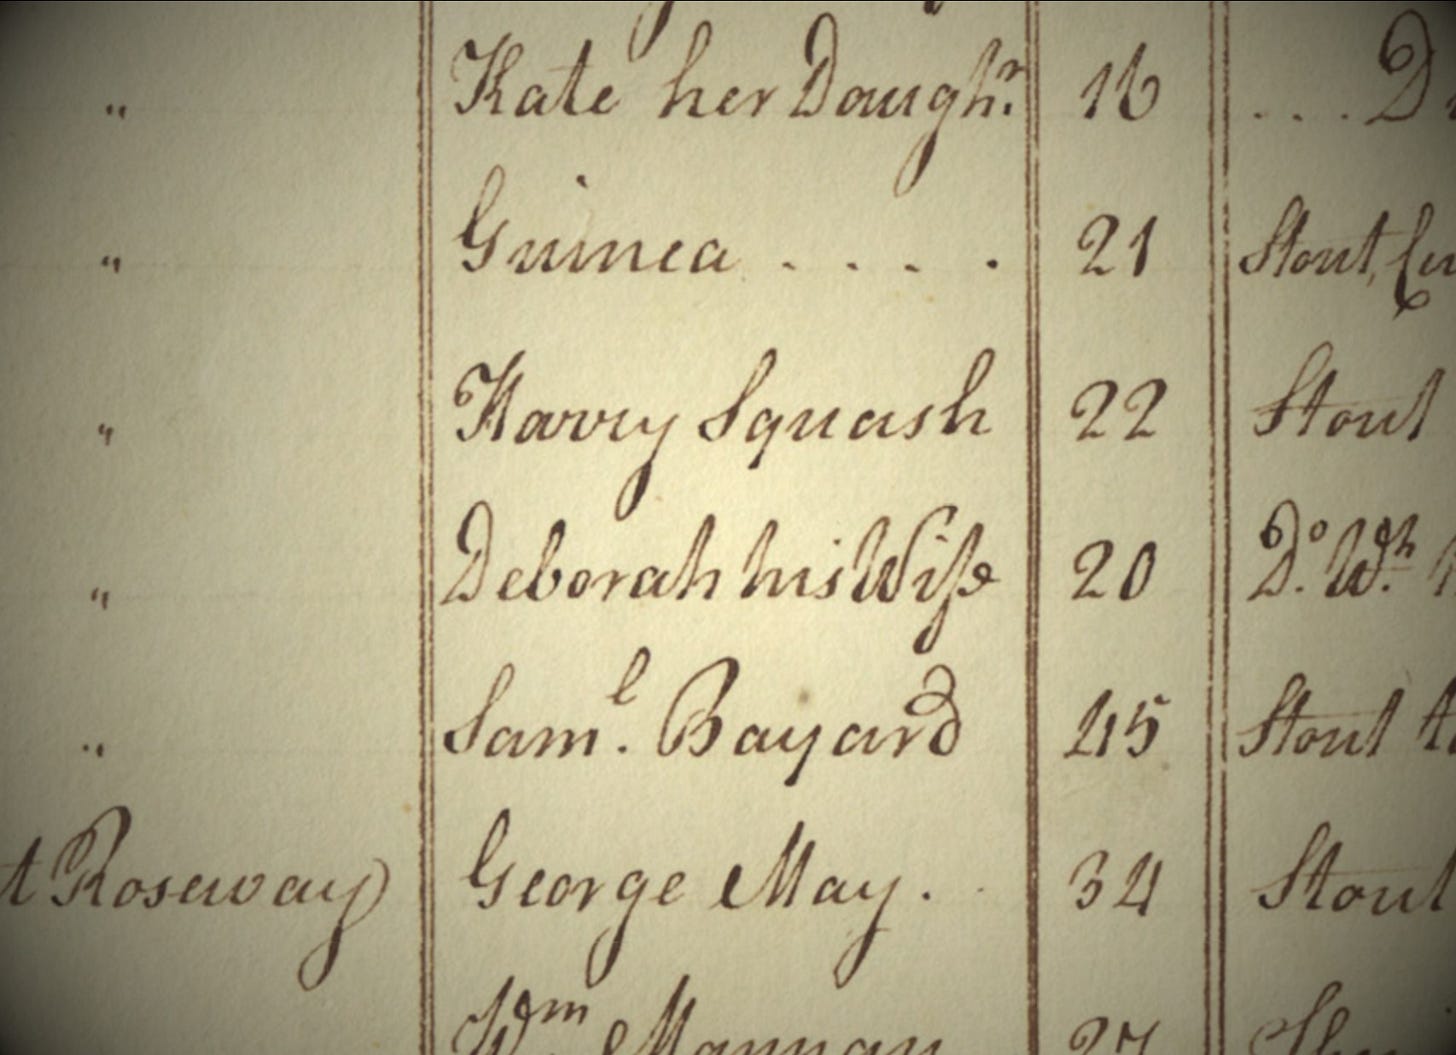 " Kate her Daughr. 16 . . . . D
" Guinea . . . . 21 Stout,
" Harry Squash 22 Stout
" Deborah his Wife 20 Do. Wth.
" Saml. Bayard 45 Stout
t Roseway) George May. 34 Stout
Wm. Mannan 27